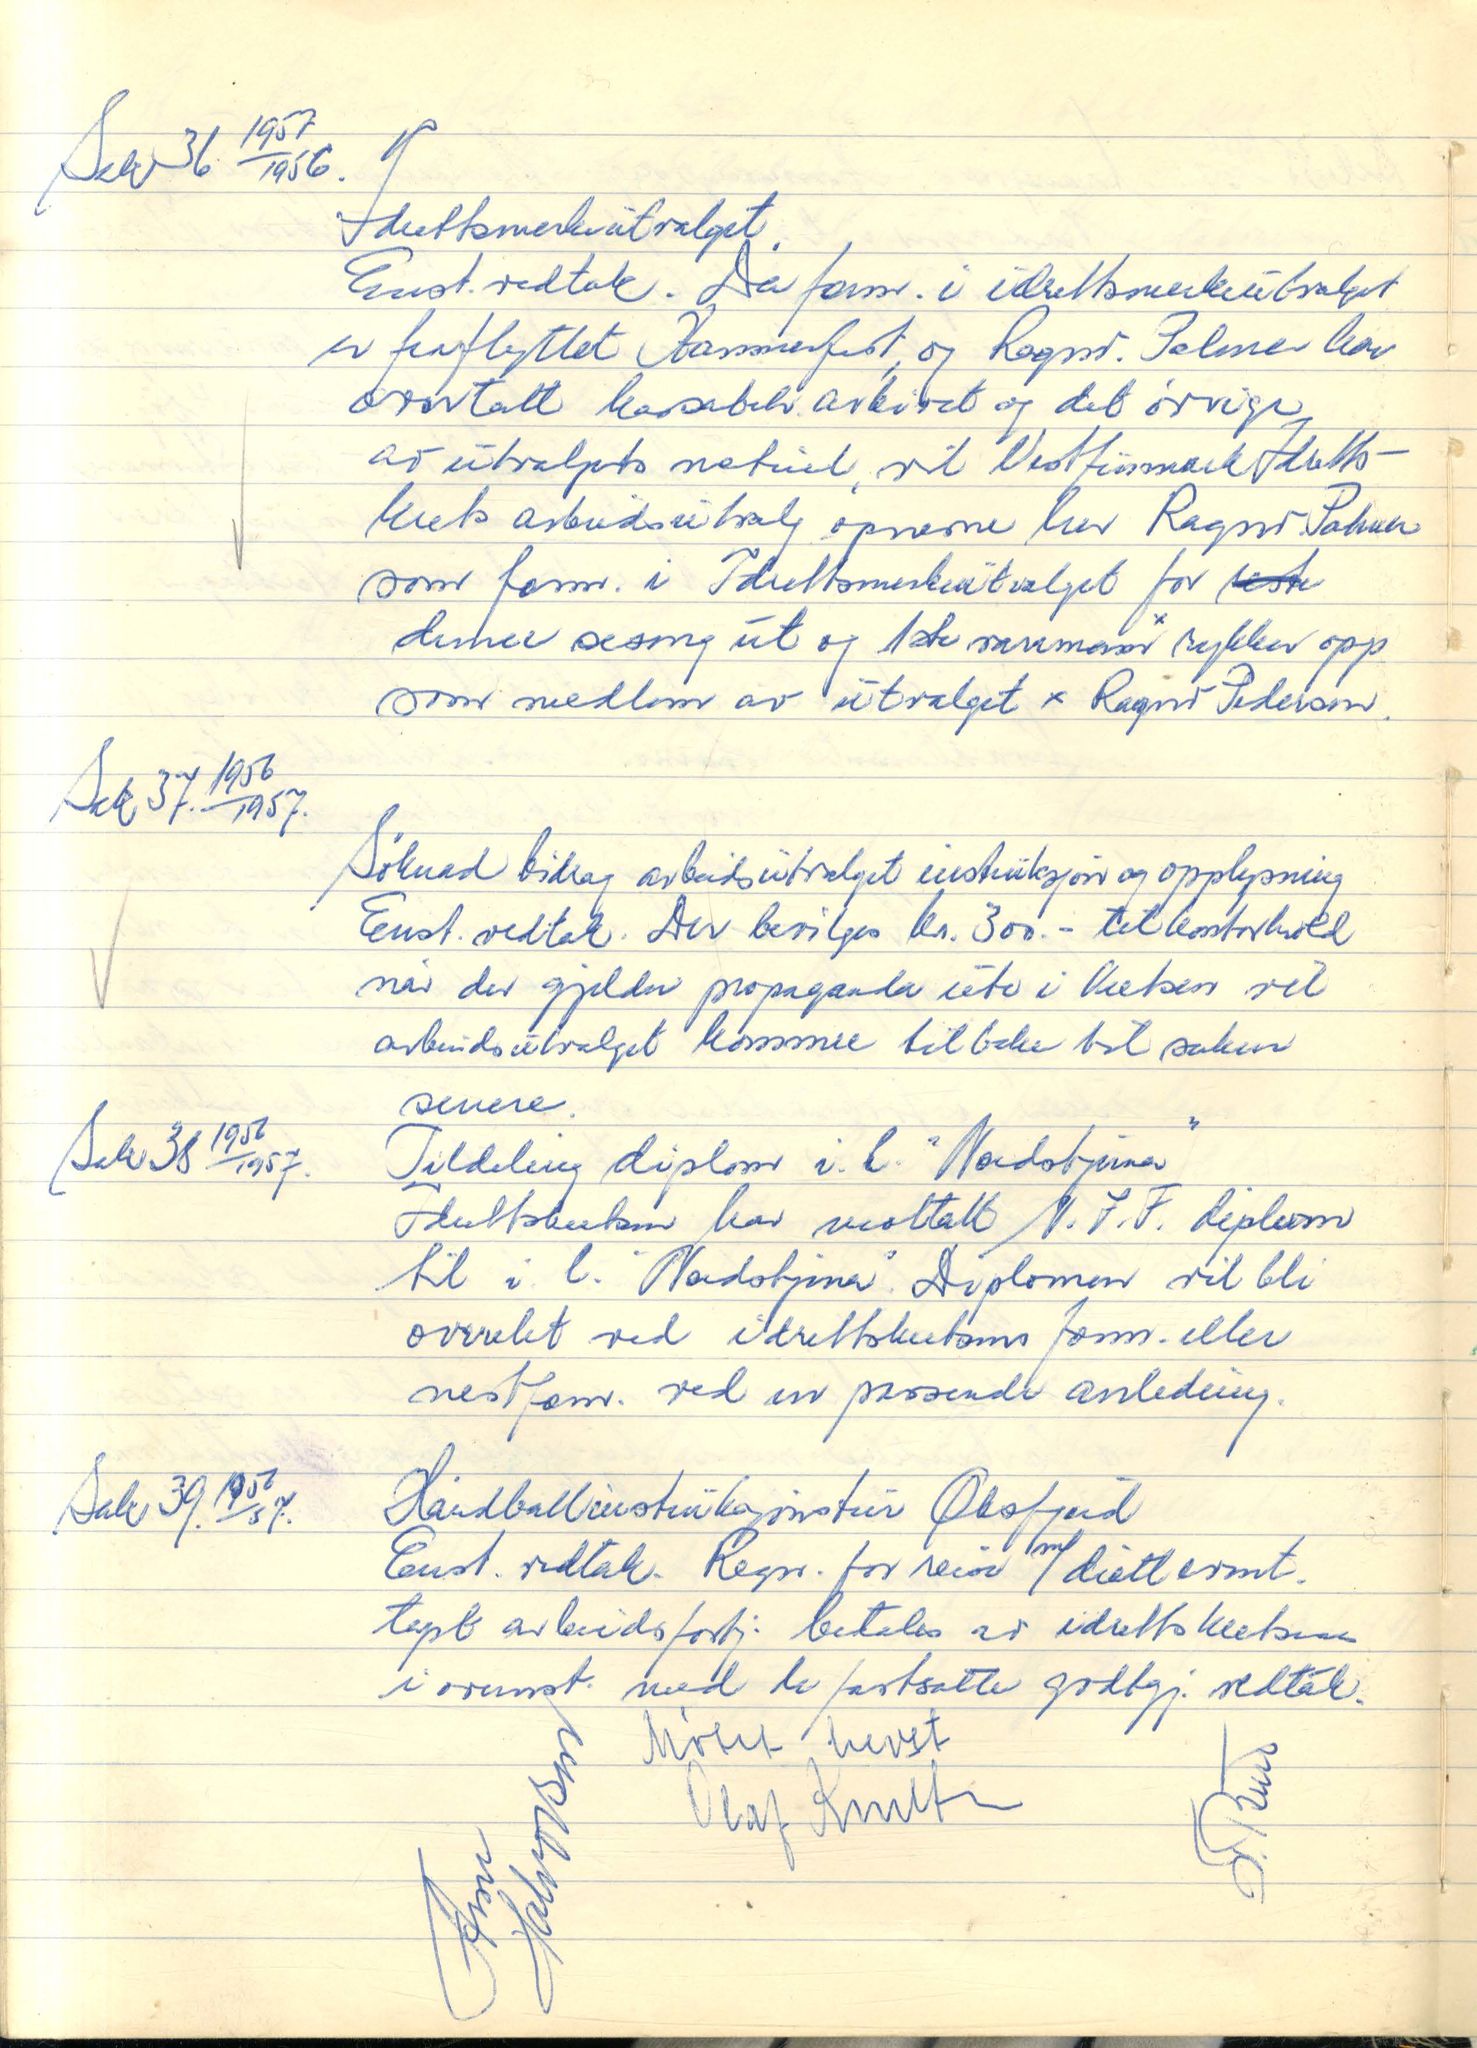 Sak 36 1957/1956.
Idrettsmerkeutvalget.
Enst. vedtak. Da form. i idrettsmerkeutvalget
er fraflyttet Hammerfest, og Ragnv. Palmer har
overtatt kassabeh. arkivet og det øvrige
av utvalgets materiel, vil Vestfinnmark Idretts-
krets arbeidsutvalg opnevne her Ragnv. Palmer
som form. i Idrettsmerkeutvalget for reste
denne sesong ut og 1ste varamann x rykker opp
som medlem av utvalget x Ragnv Pedersen.
Sak 37. 1956/1957.
Söknad bidrag arbeidsutvalget instruksjon og opplysning
Enst. vedtak. Der bevilges kr. 300.- til kontorhold
når der gjelder propaganda ute i kretsen vil
arbeidsutvalget komme tilbake til saken
senere.
Sak 38 1956/1957.
Tildeling diplom i. l. "Nordstjerna"
Idrettskretsen har mottatt N.I.F. diplom
til i. l. "Nordstjerna". Diplomen vil bli
overrekt ved idrettskretsens form. eller
nestform. ved en passende anledning.
Sak 39. 1956/57.
Håndballinstruksjonstur Øksfjord
Enst. vedtak. Regn. for reise m/ diett samt.
tapt arbeidsfortj. betales av idrettskretsen
i overenst. med de fastsatte godtgj. vedtak.
Møtet hevet
Olaf Knutsen
Arne
Halvorsen